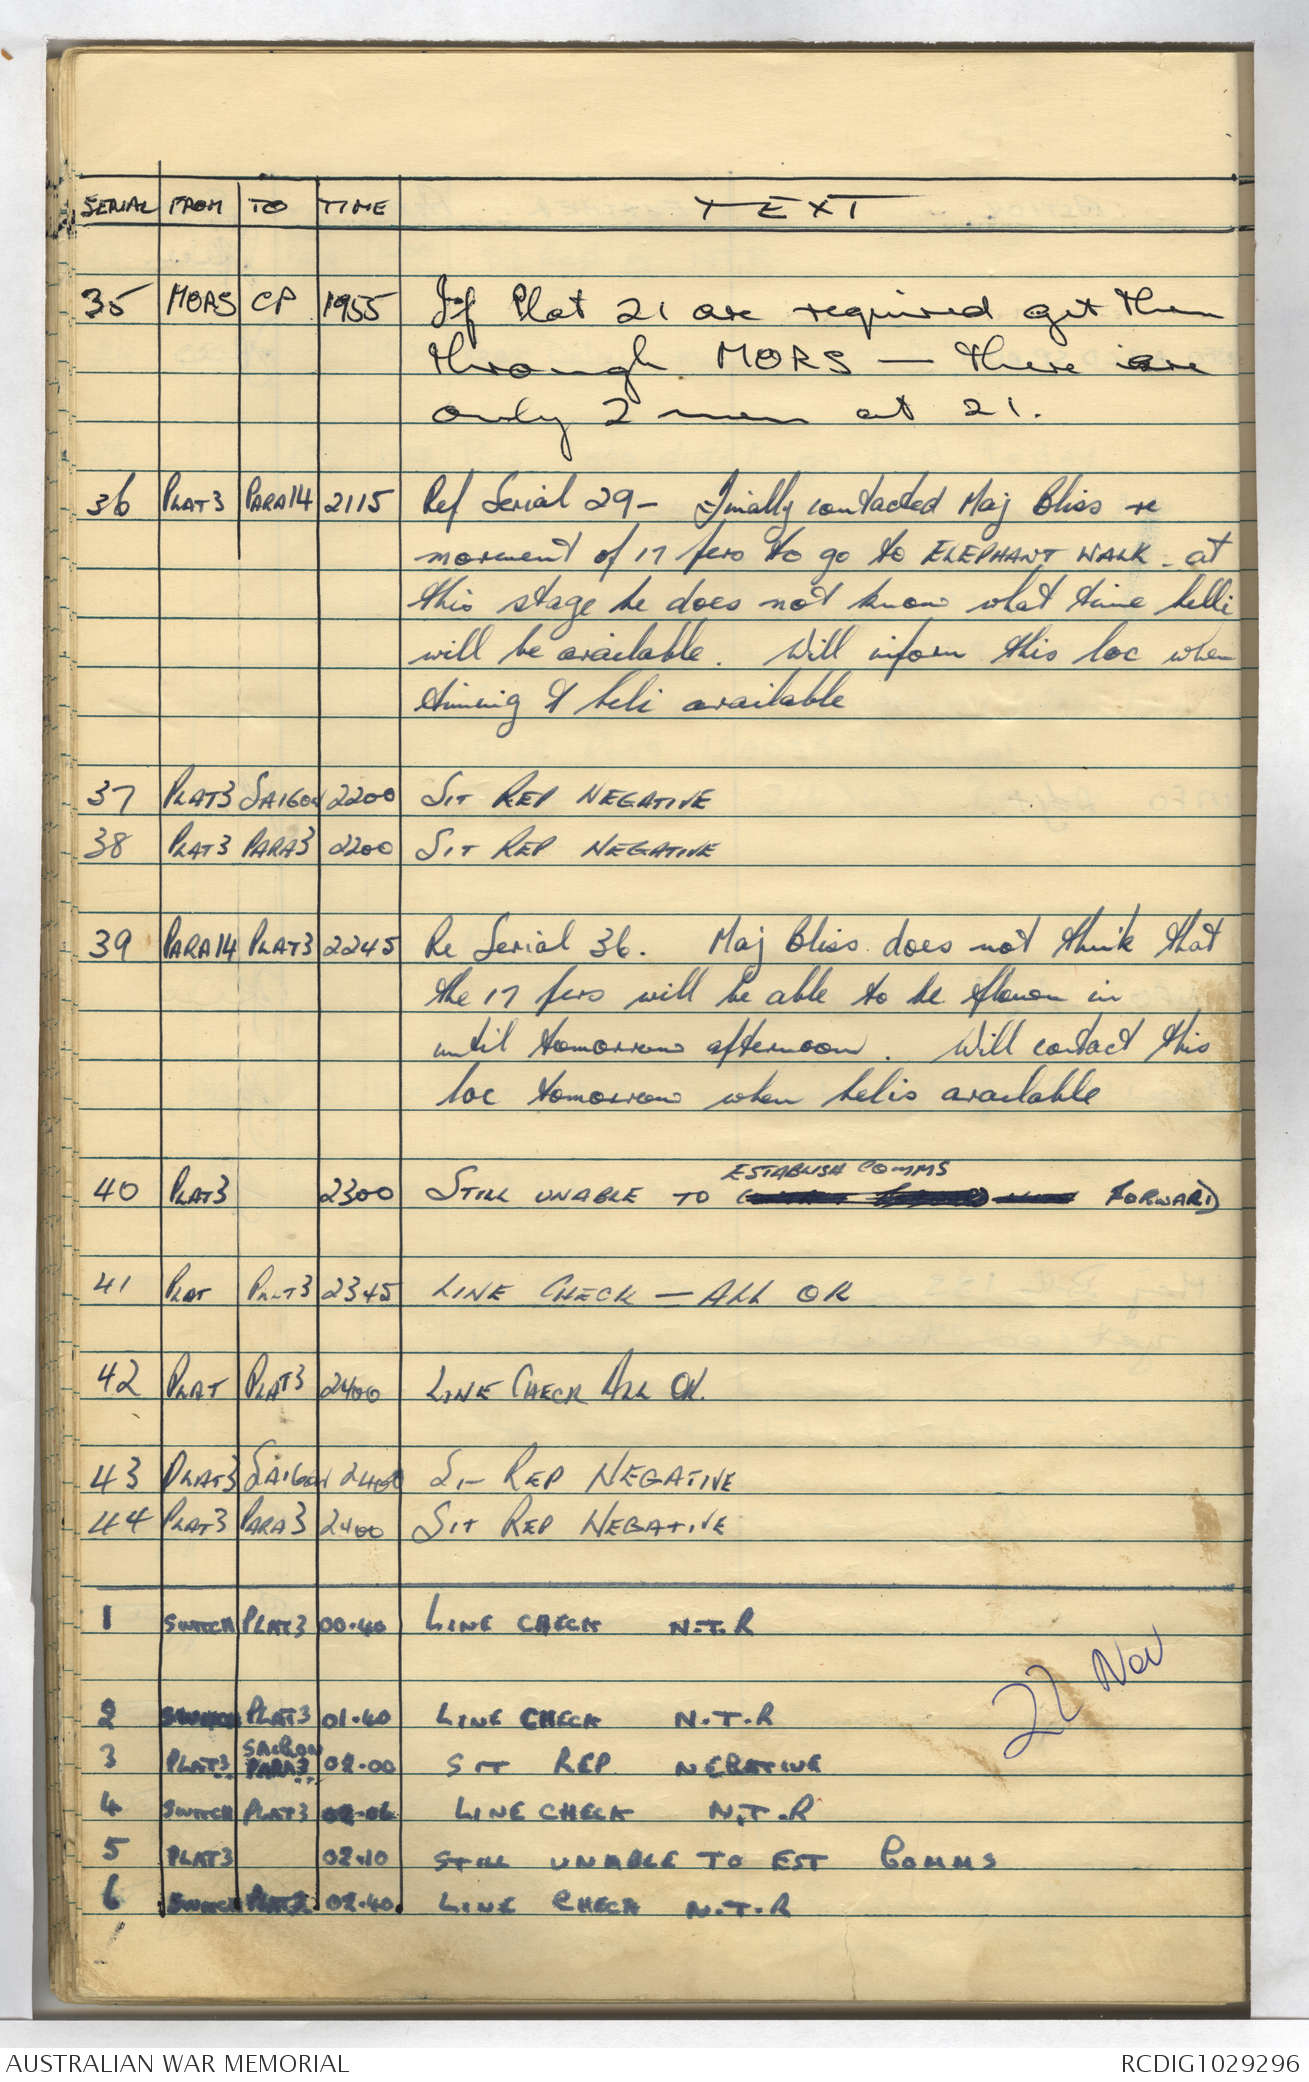 SERIAL FROM TO TIME TEXT
35 MORS CP 1955 If Plat 21 are required get them
through MORS — there are
only 2 men at 21.
36 PLAT3 PARA14 2115 Ref Serial 29 - Finally contacted Maj Bliss re
movement of 17 pers to go to ELEPHANT WALK - at
this stage he does not know what time helli
will be available. Will inform this loc when
timing & heli available
37 PLAT3 SAIGON 2200 SIT REP NEGATIVE
38 PLAT3 PARA3 2200 SIT REP NEGATIVE
39 PARA14 PLAT3 2245 Re Serial 36. Maj Bliss does not think that
the 17 pers will be able to be flown in
until tomorrow afternoon. Will contact this
loc tomorrow when helis available
ESTABLISH COMMS
40 PLAT3 2300 STILL UNABLE TO FORWARD
41 PLAT PLAT3 2345 LINE CHECK — ALL OK
42 PLAT PLAT3 2400 LINE CHECK ALL OK.
43 PLAT3 SAIGON 2400 SIT REP NEGATIVE
44 PLAT3 PARA3 2400 SIT REP NEGATIVE
1 SWITCH PLAT3 00.40 LINE CHECK N.T.R
22 Nov
2 SWITCH PLAT3 01.40 LINE CHECK N.T.R
SAIGON
3 PLAT3 PARA3 02.00 SIT REP NEGATIVE
4 SWITCH PLAT3 02.06 LINE CHECK N.T.R
5 PLAT3 02.10 STILL UNABLE TO EST COMMS
6 SWITCH PLAT3 02.40 LINE CHECK N.T.R
AUSTRALIAN WAR MEMORIAL RCDIG1029296